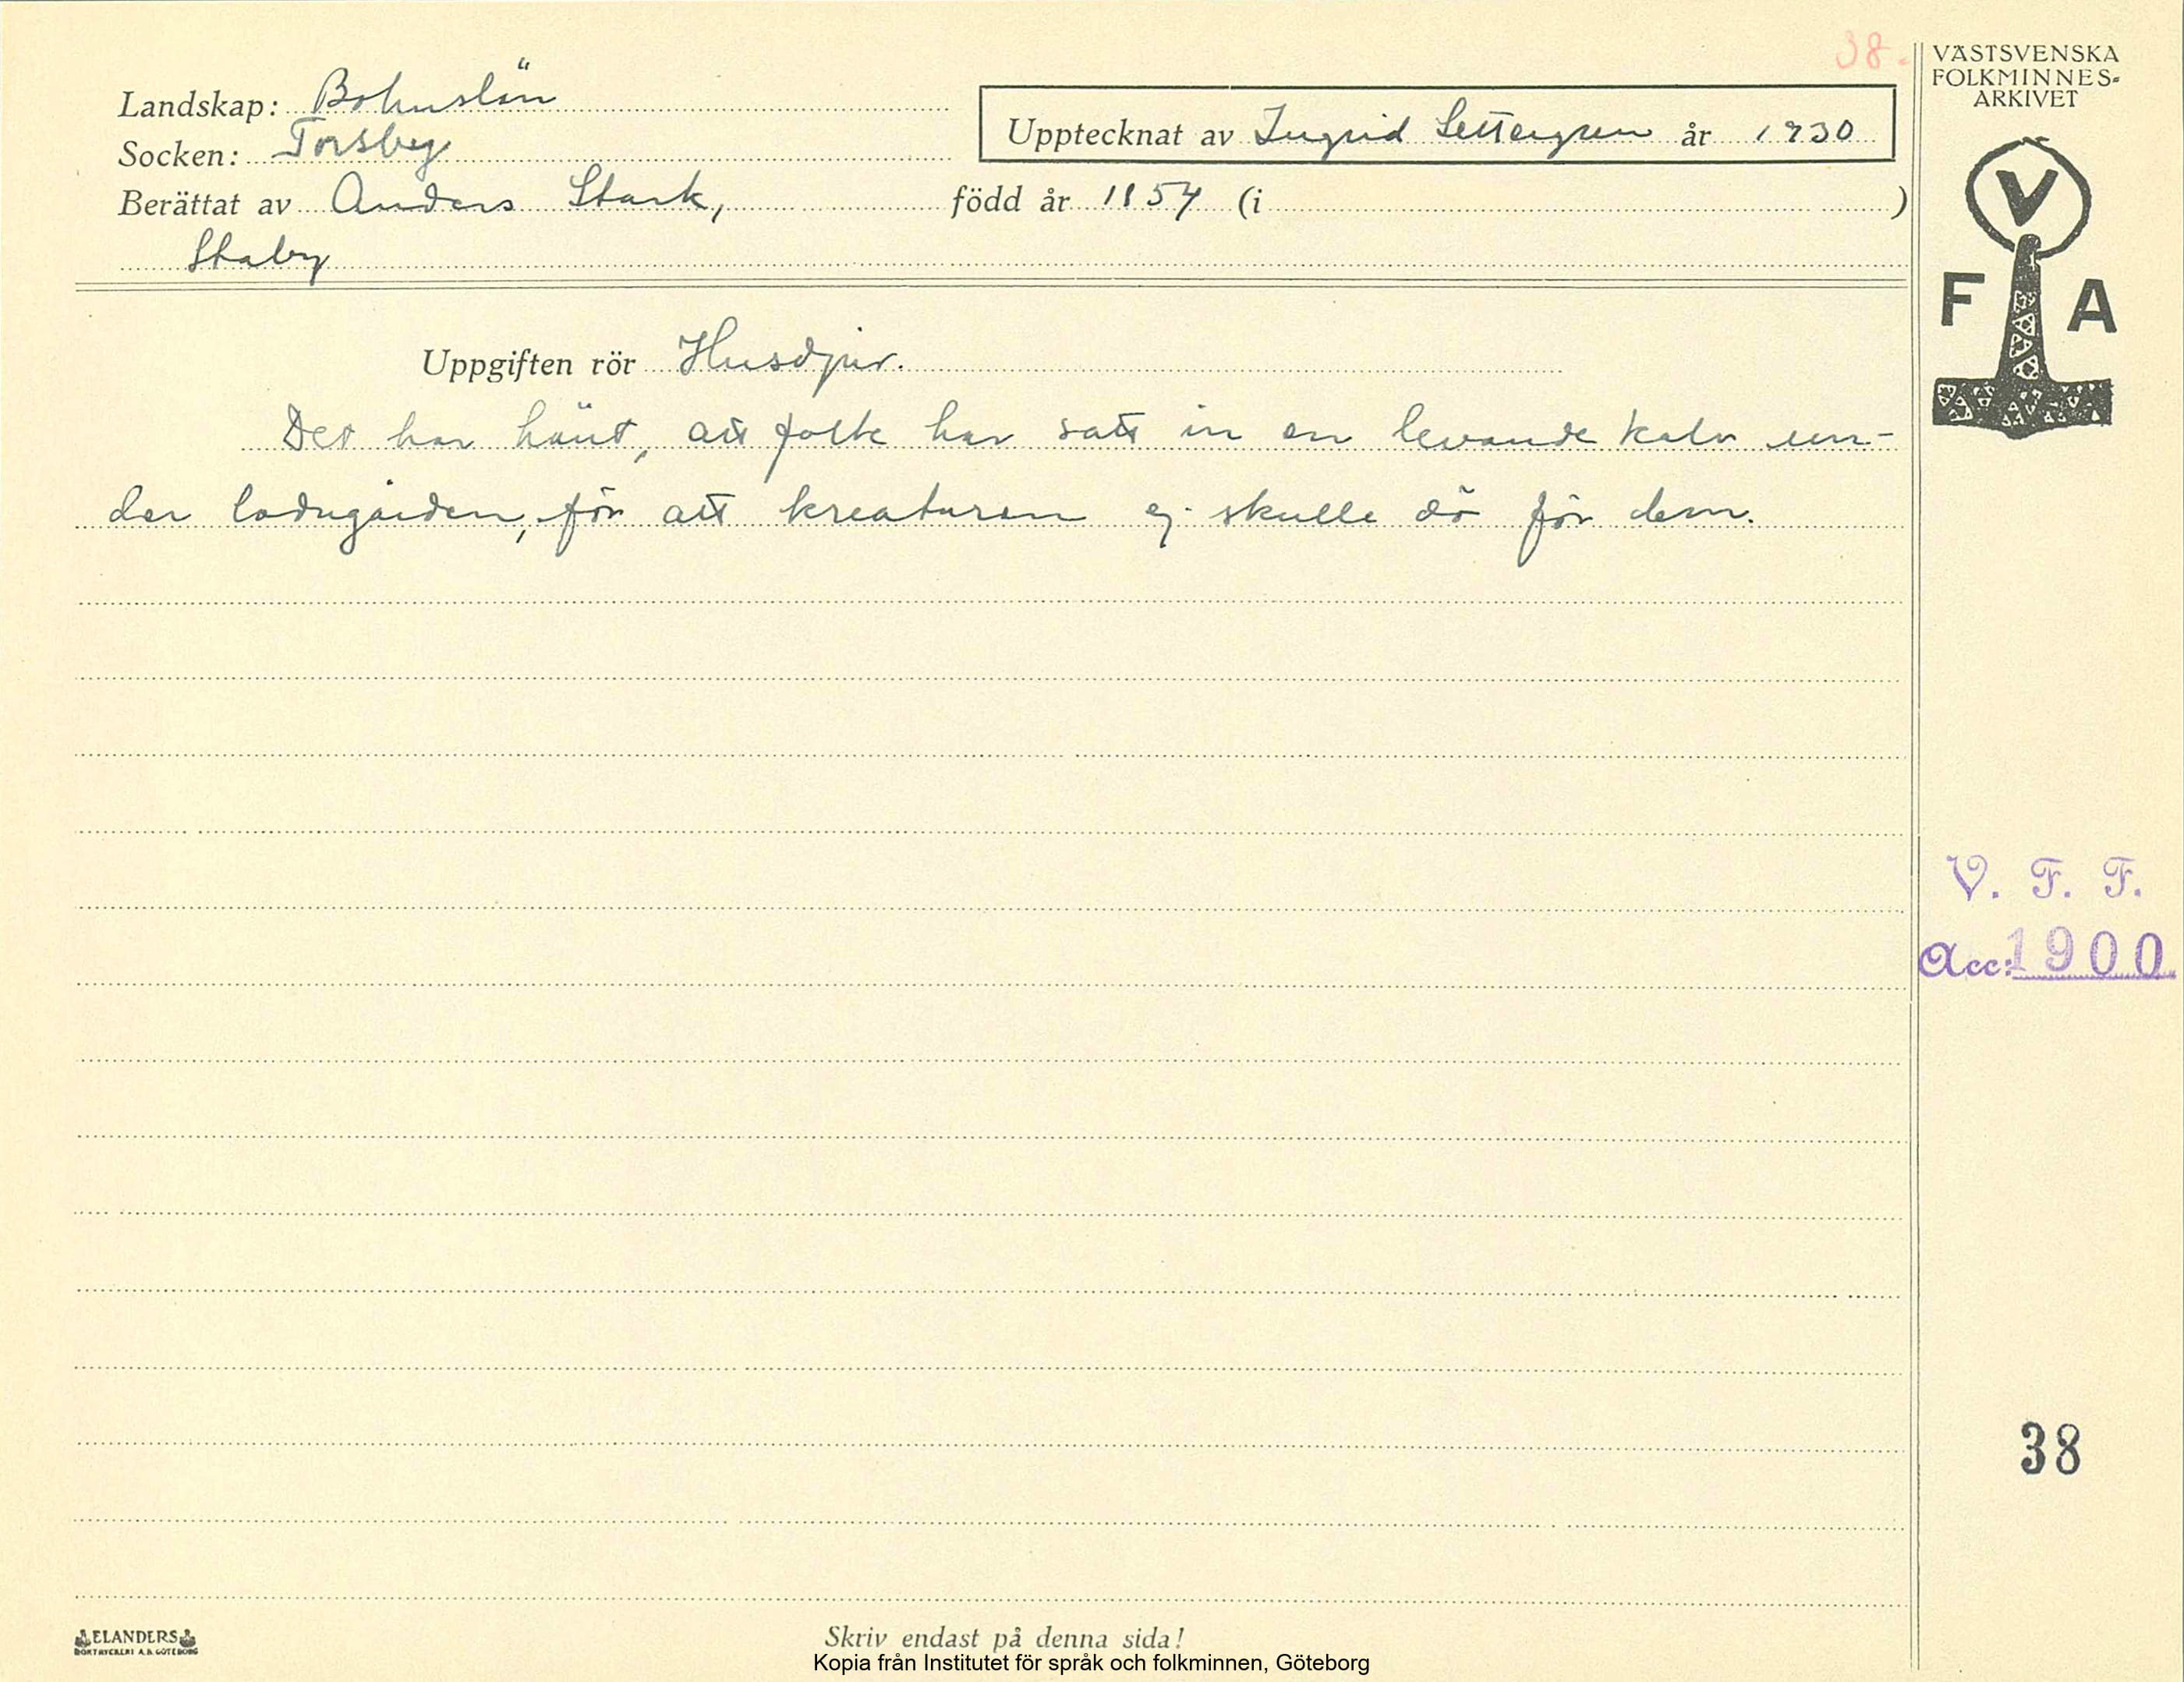 38.
VÄSTSVENSKA
FOLKMINNES-
ARKIVET
Landskap: Bohuslän
Upptecknat av Ingrid Settergren år 1930
Socken: Torsby
Berättat av Anders Stark, född år 1854 (i )
Staby
V
F A
Uppgiften rör Husdjur.
Det har hänt, att folk har satt in en levande kalv un-
der ladugården, för att kreaturen ej skulle dö för dem.
V. F. F.
Acc: 1900
38
ELANDERS
BOKTRYCKERI A.B. GÖTEBORG
Skriv endast på denna sida!
Kopia från Institutet för språk och folkminnen, Göteborg